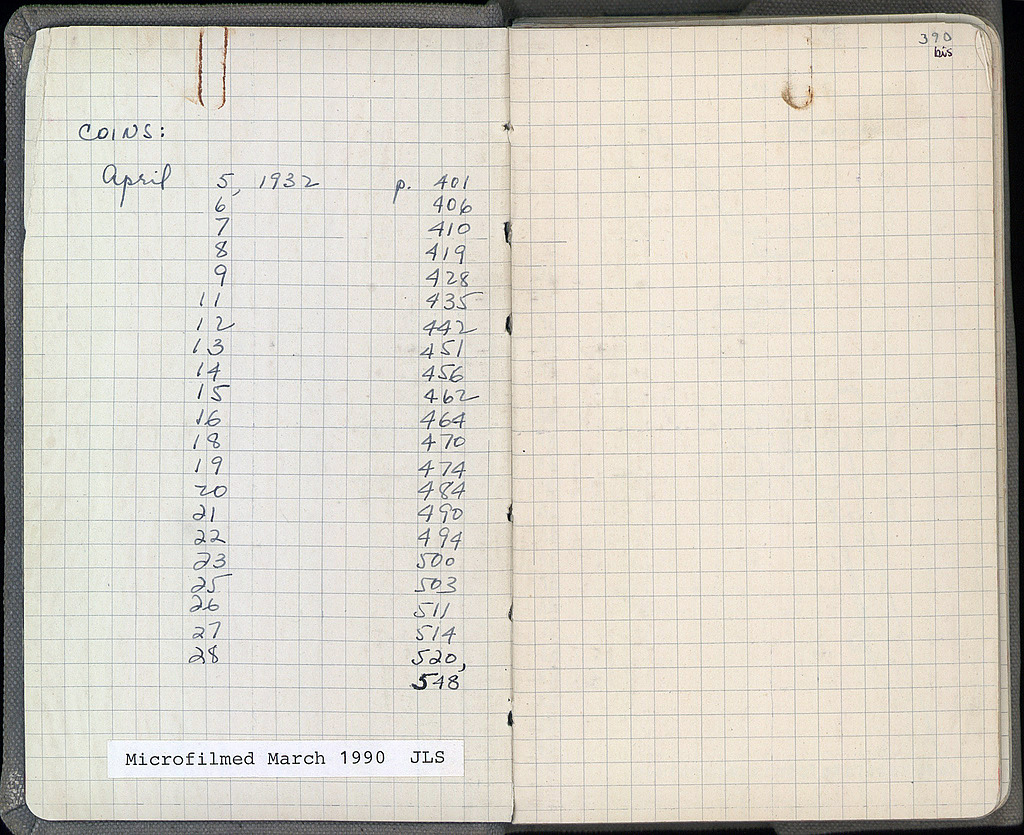 COINS:
April 5, 1932 p. 401
6 406
7 410
8 419
9 428
11 435
12 442
13 451
14 456
15 462
16 464
18 470
19 474
20 484
21 490
22 494
23 500
25 503
26 511
27 514
28 520,
548
Microfilmed March 1990 JLS
390
bis